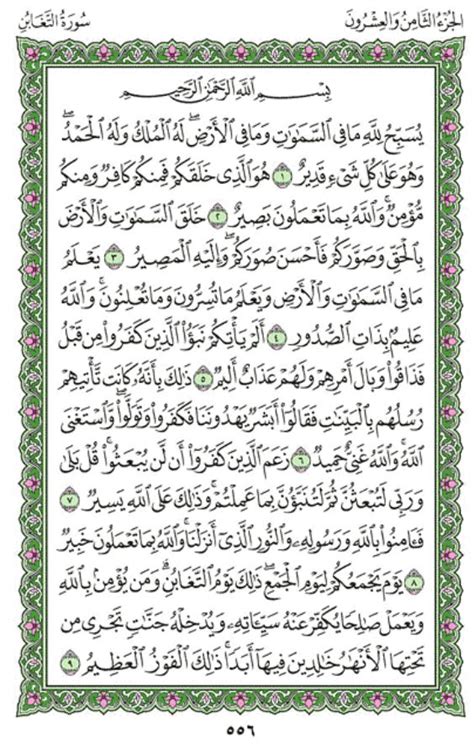 الجزء الثامن والعشرون
سورة التغابن
بِسْمِ ٱللَّهِ ٱلرَّحْمَٰنِ ٱلرَّحِيمِ
يُسَبِّحُ لِلَّهِ مَا فِى ٱلسَّمَٰوَٰتِ وَمَا فِى ٱلْأَرْضِ ۖ لَهُ ٱلْمُلْكُ وَلَهُ ٱلْحَمْدُ ۖ
وَهُوَ عَلَىٰ كُلِّ شَىْءٍ قَدِيرٌ ١ هُوَ ٱلَّذِى خَلَقَكُمْ فَمِنكُمْ كَافِرٌ وَمِنكُم
مُّؤْمِنٌ ۚ وَٱللَّهُ بِمَا تَعْمَلُونَ بَصِيرٌ ٢ خَلَقَ ٱلسَّمَٰوَٰتِ وَٱلْأَرْضَ
بِٱلْحَقِّ وَصَوَّرَكُمْ فَأَحْسَنَ صُوَرَكُمْ ۖ وَإِلَيْهِ ٱلْمَصِيرُ ٣ يَعْلَمُ
مَا فِى ٱلسَّمَٰوَٰتِ وَٱلْأَرْضِ وَيَعْلَمُ مَا تُسِرُّونَ وَمَا تُعْلِنُونَ ۚ وَٱللَّهُ
عَلِيمٌۢ بِذَاتِ ٱلصُّدُورِ ٤ أَلَمْ يَأْتِكُمْ نَبَؤُا۟ ٱلَّذِينَ كَفَرُوا۟ مِن قَبْلُ
فَذَاقُوا۟ وَبَالَ أَمْرِهِمْ وَلَهُمْ عَذَابٌ أَلِيمٌ ٥ ذَٰلِكَ بِأَنَّهُۥ كَانَت تَّأْتِيهِمْ
رُسُلُهُم بِٱلْبَيِّنَٰتِ فَقَالُوٓا۟ أَبَشَرٌ يَهْدُونَنَا فَكَفَرُوا۟ وَتَوَلَّوا۟ ۚ وَّٱسْتَغْنَى
ٱللَّهُ ۚ وَٱللَّهُ غَنِىٌّ حَمِيدٌ ٦ زَعَمَ ٱلَّذِينَ كَفَرُوٓا۟ أَن لَّن يُبْعَثُوا۟ ۚ قُلْ بَلَىٰ
وَرَبِّى لَتُبْعَثُنَّ ثُمَّ لَتُنَبَّؤُنَّ بِمَا عَمِلْتُمْ ۚ وَذَٰلِكَ عَلَى ٱللَّهِ يَسِيرٌ ٧
فَـَٔامِنُوا۟ بِٱللَّهِ وَرَسُولِهِۦ وَٱلنُّورِ ٱلَّذِىٓ أَنزَلْنَا ۚ وَٱللَّهُ بِمَا تَعْمَلُونَ خَبِيرٌ
٨ يَوْمَ يَجْمَعُكُمْ لِيَوْمِ ٱلْجَمْعِ ۖ ذَٰلِكَ يَوْمُ ٱلتَّغَابُنِ ۗ وَمَن يُؤْمِنۢ بِٱللَّهِ
وَيَعْمَلْ صَٰلِحًا يُكَفِّرْ عَنْهُ سَيِّـَٔاتِهِۦ وَيُدْخِلْهُ جَنَّٰتٍ تَجْرِى مِن
تَحْتِهَا ٱلْأَنْهَٰرُ خَٰلِدِينَ فِيهَآ أَبَدًا ۚ ذَٰلِكَ ٱلْفَوْزُ ٱلْعَظِيمُ ٩
٥٥٦